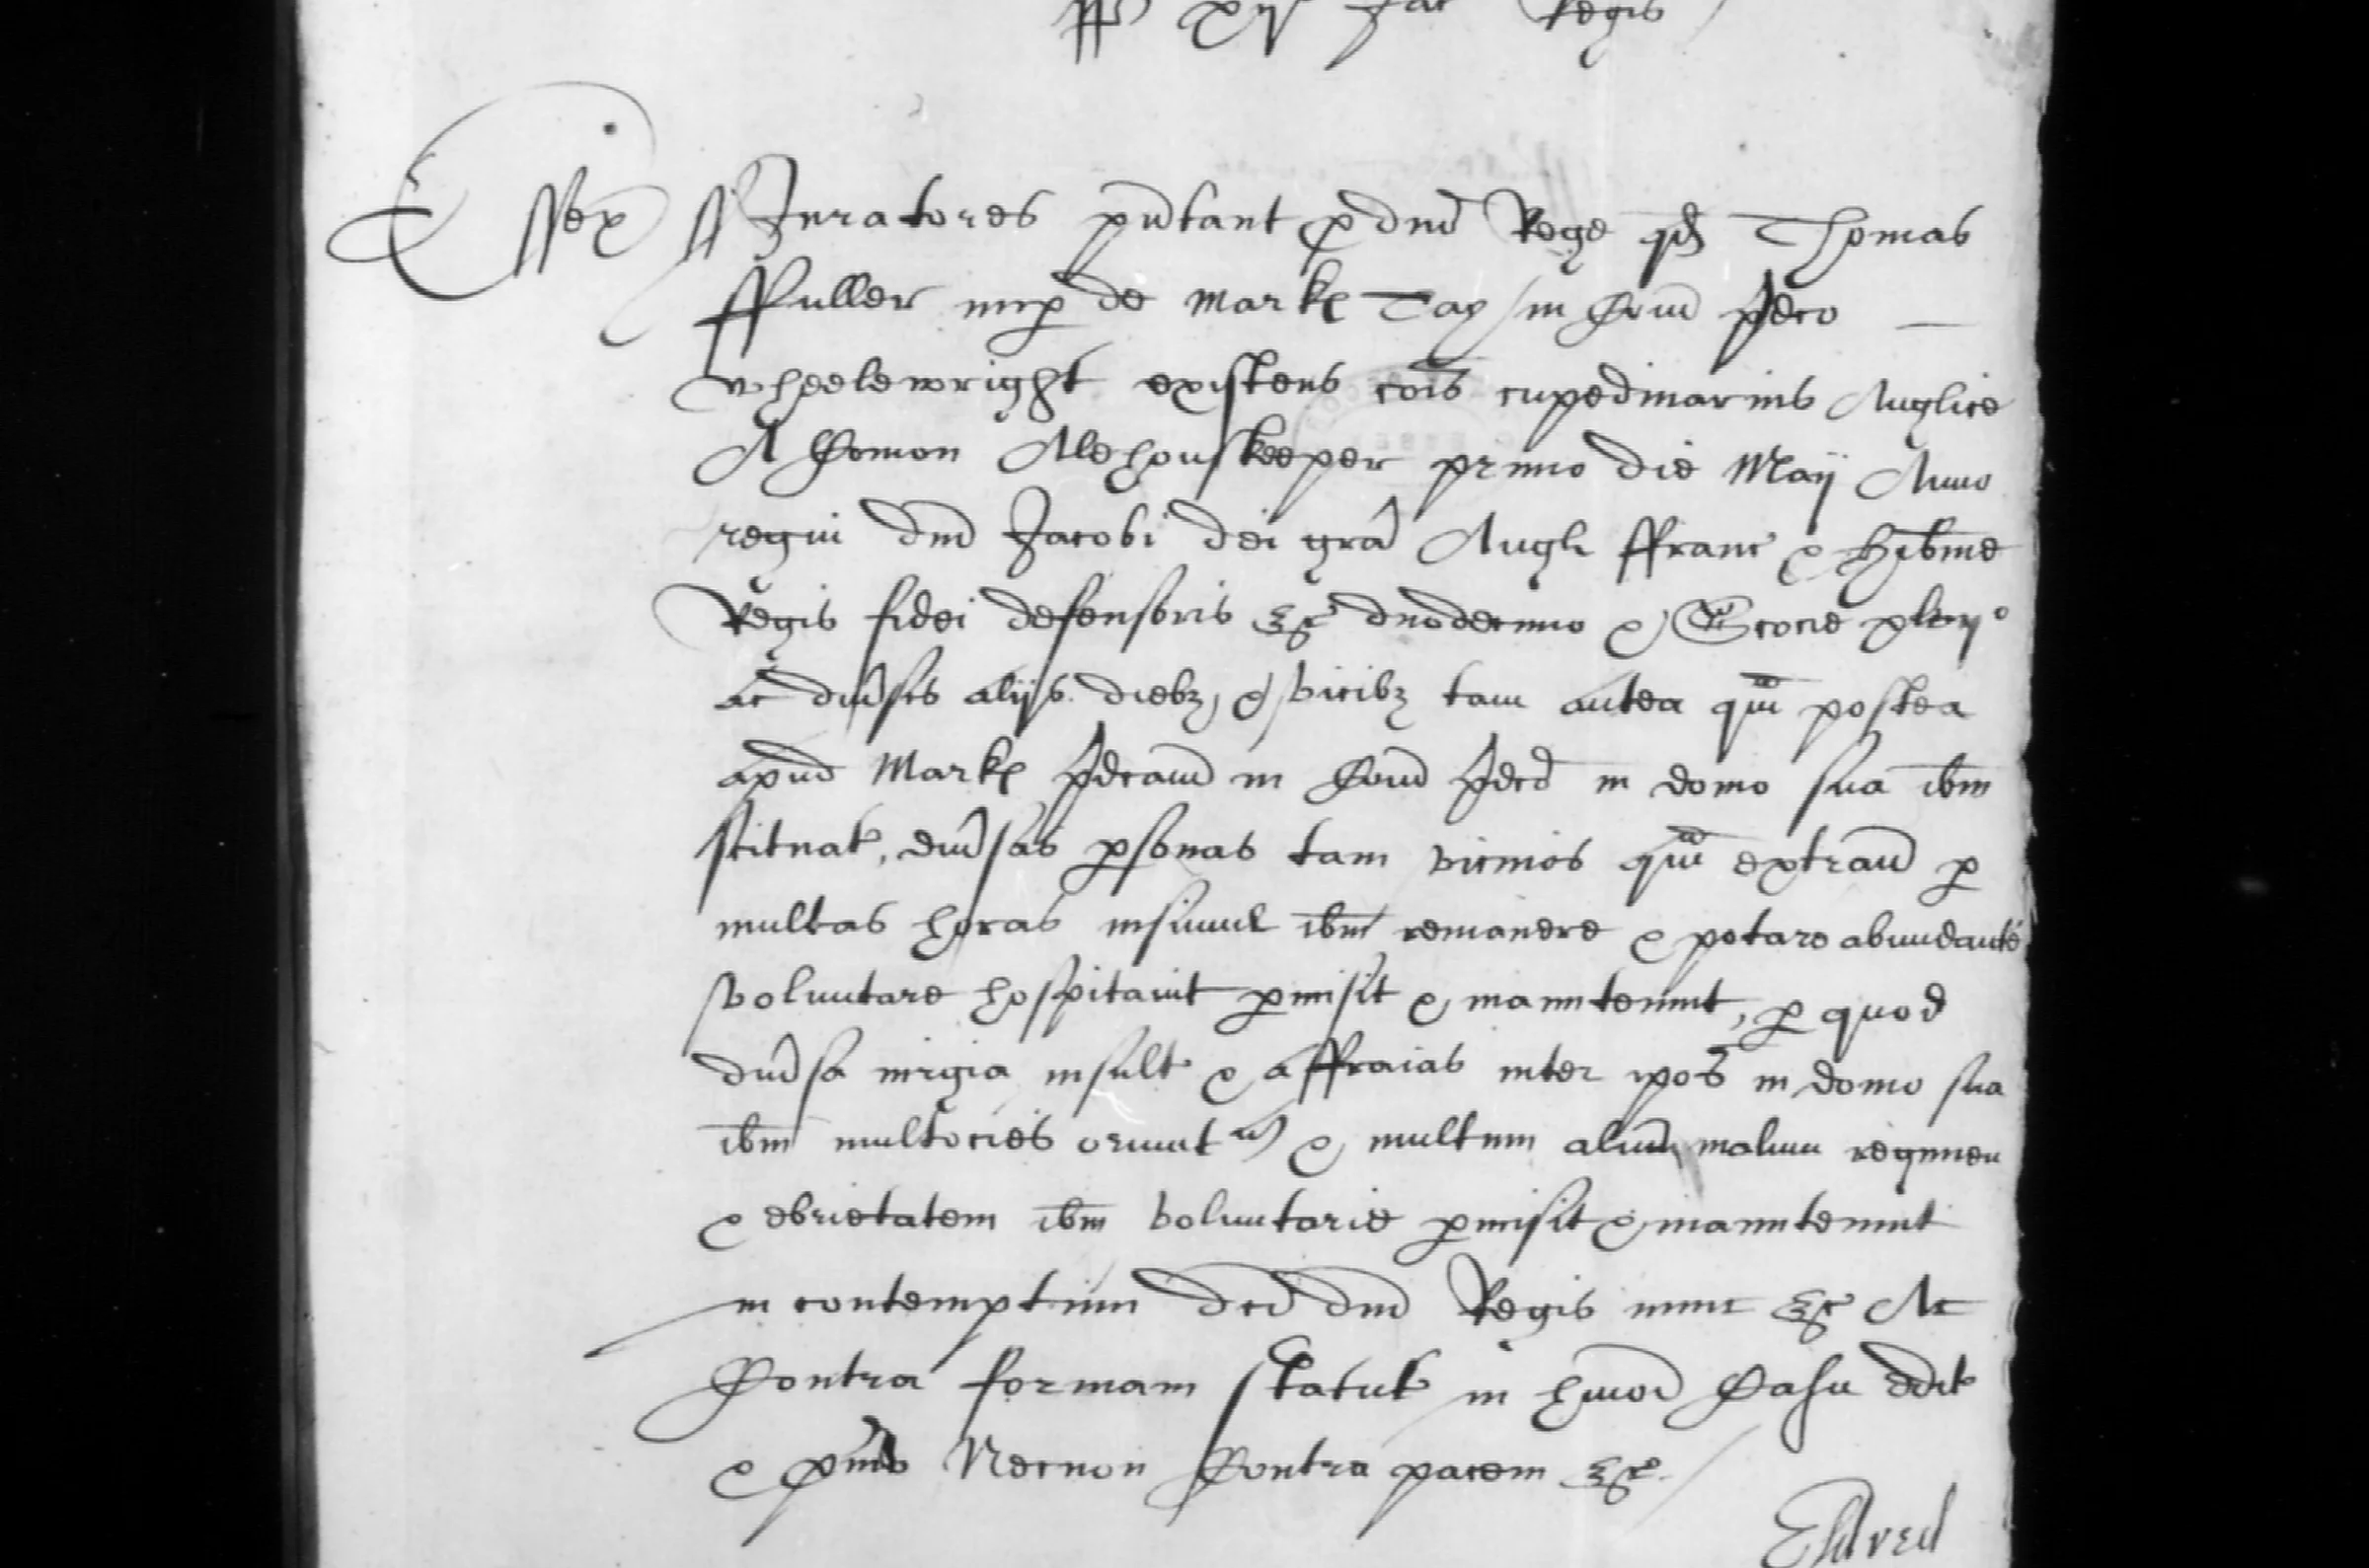 xij Jac Regis
Essex ss Juratores pñtant p dnõ Rege qd Thomas
ffuller nup de Marks Tay in Com pdco
wheelewright existens cois cupedinarius Anglice
A Comon Alehouskeeper primo die Maij Anno
regni dnĩ Jacobi dei grã Angl ffranc & Hibnie
Regis fidei defensoris &c duodecimo & Scocie xlvijo
ac diũsis alijs diebz & vicibz tam antea qm postea
apud Marks pdcam in Com pdcõ in domo sua ibm
scituat, diũsas psonas tam vicinos qm extran p
multas horas insimul ibm remanere & potare abundante
voluntare hospitavit pmisit & manutenuit, p quod
diũsa iurgia insult & affraias inter ipõs in domo sua
ibm multocies oriunt & multum aliud malum regimen
& ebrietatem ibm voluntarie pmisit & manutenuit
in contemptum dcĩ dnĩ Regis nunc &c Ac
Contra formam statut in hmõi Casu edit
& pvis Necnon Contra pacem &c
Eldred